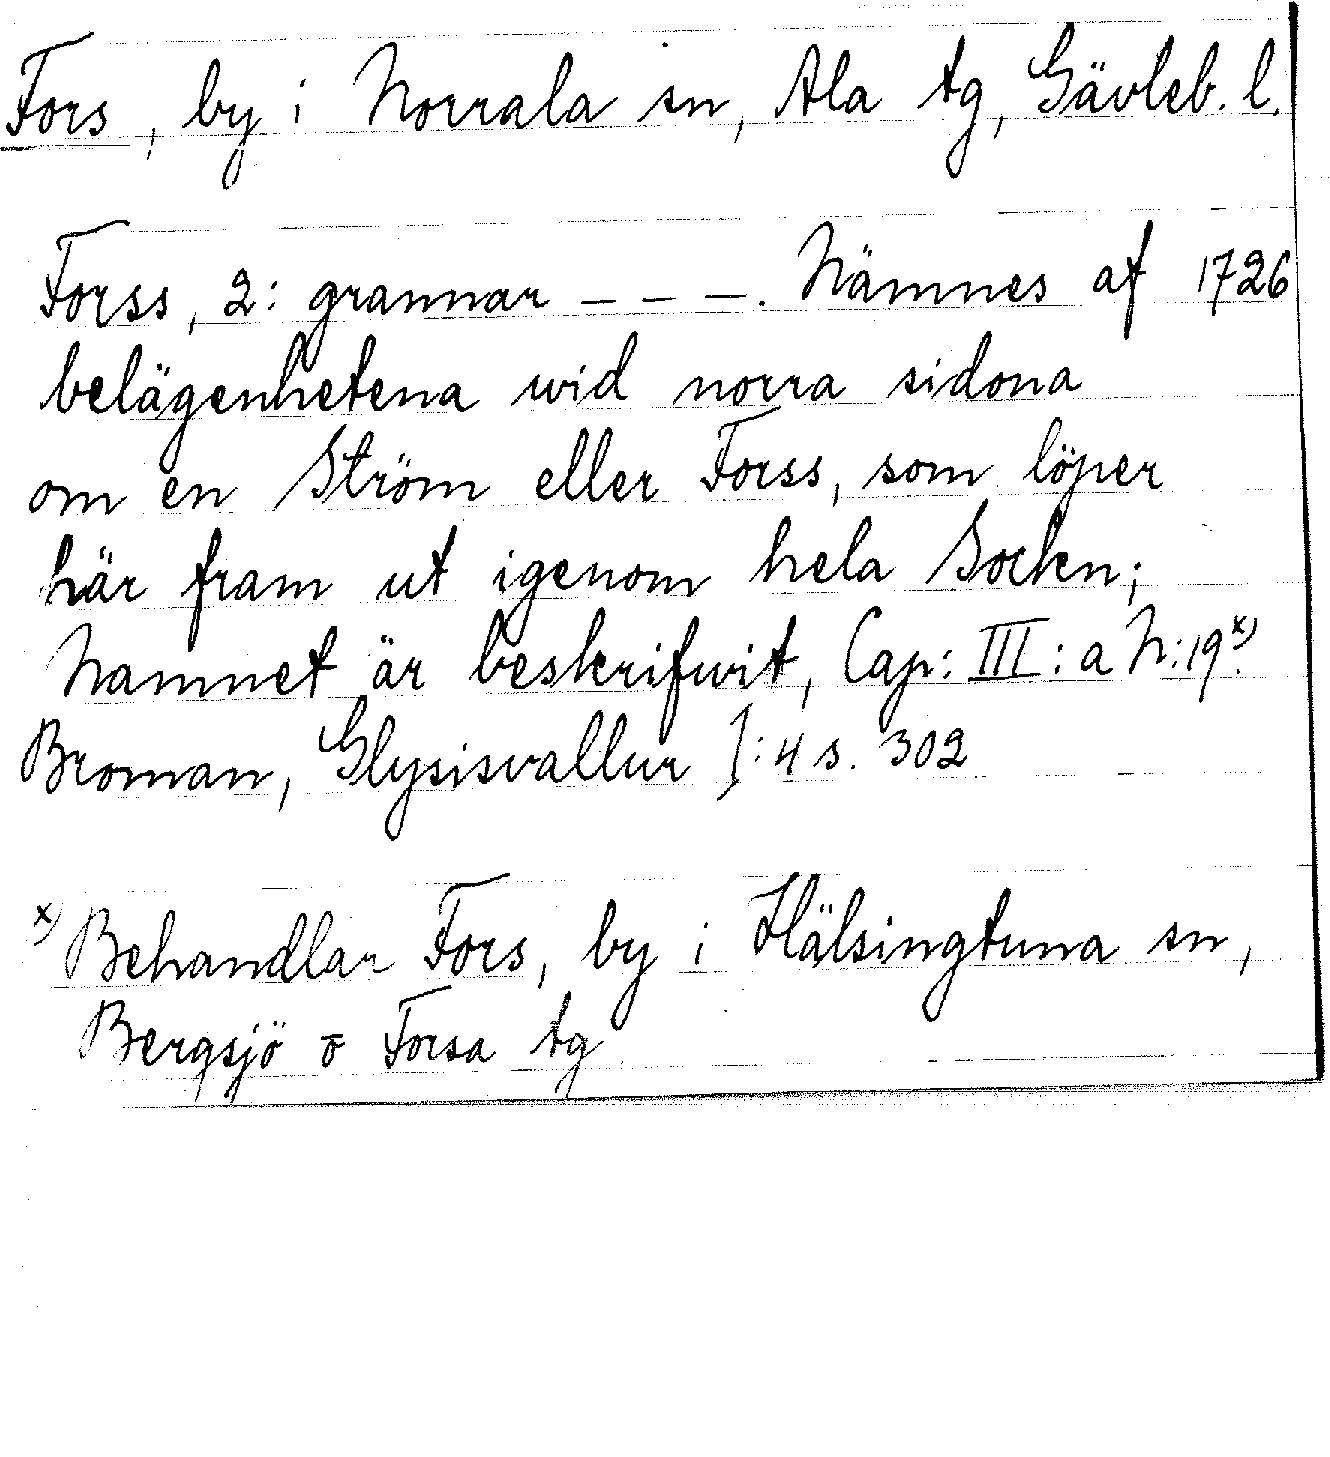 Fors, by i Norrala sn, Ala tg, Gävleb. l.
Forss, 2: grannar – – –. Nämnes af 1726
belägenhetena wid norra sidona
om en Ström eller Forss, som löper
här fram ut igenom hela Socken;
Namnet är beskrifwit, Cap: III: a N:19x).
Broman, Glysisvallur I: 4 s. 302
x) Behandlar Fors, by i Hälsingtuna sn,
Bergsjö o Forsa tg